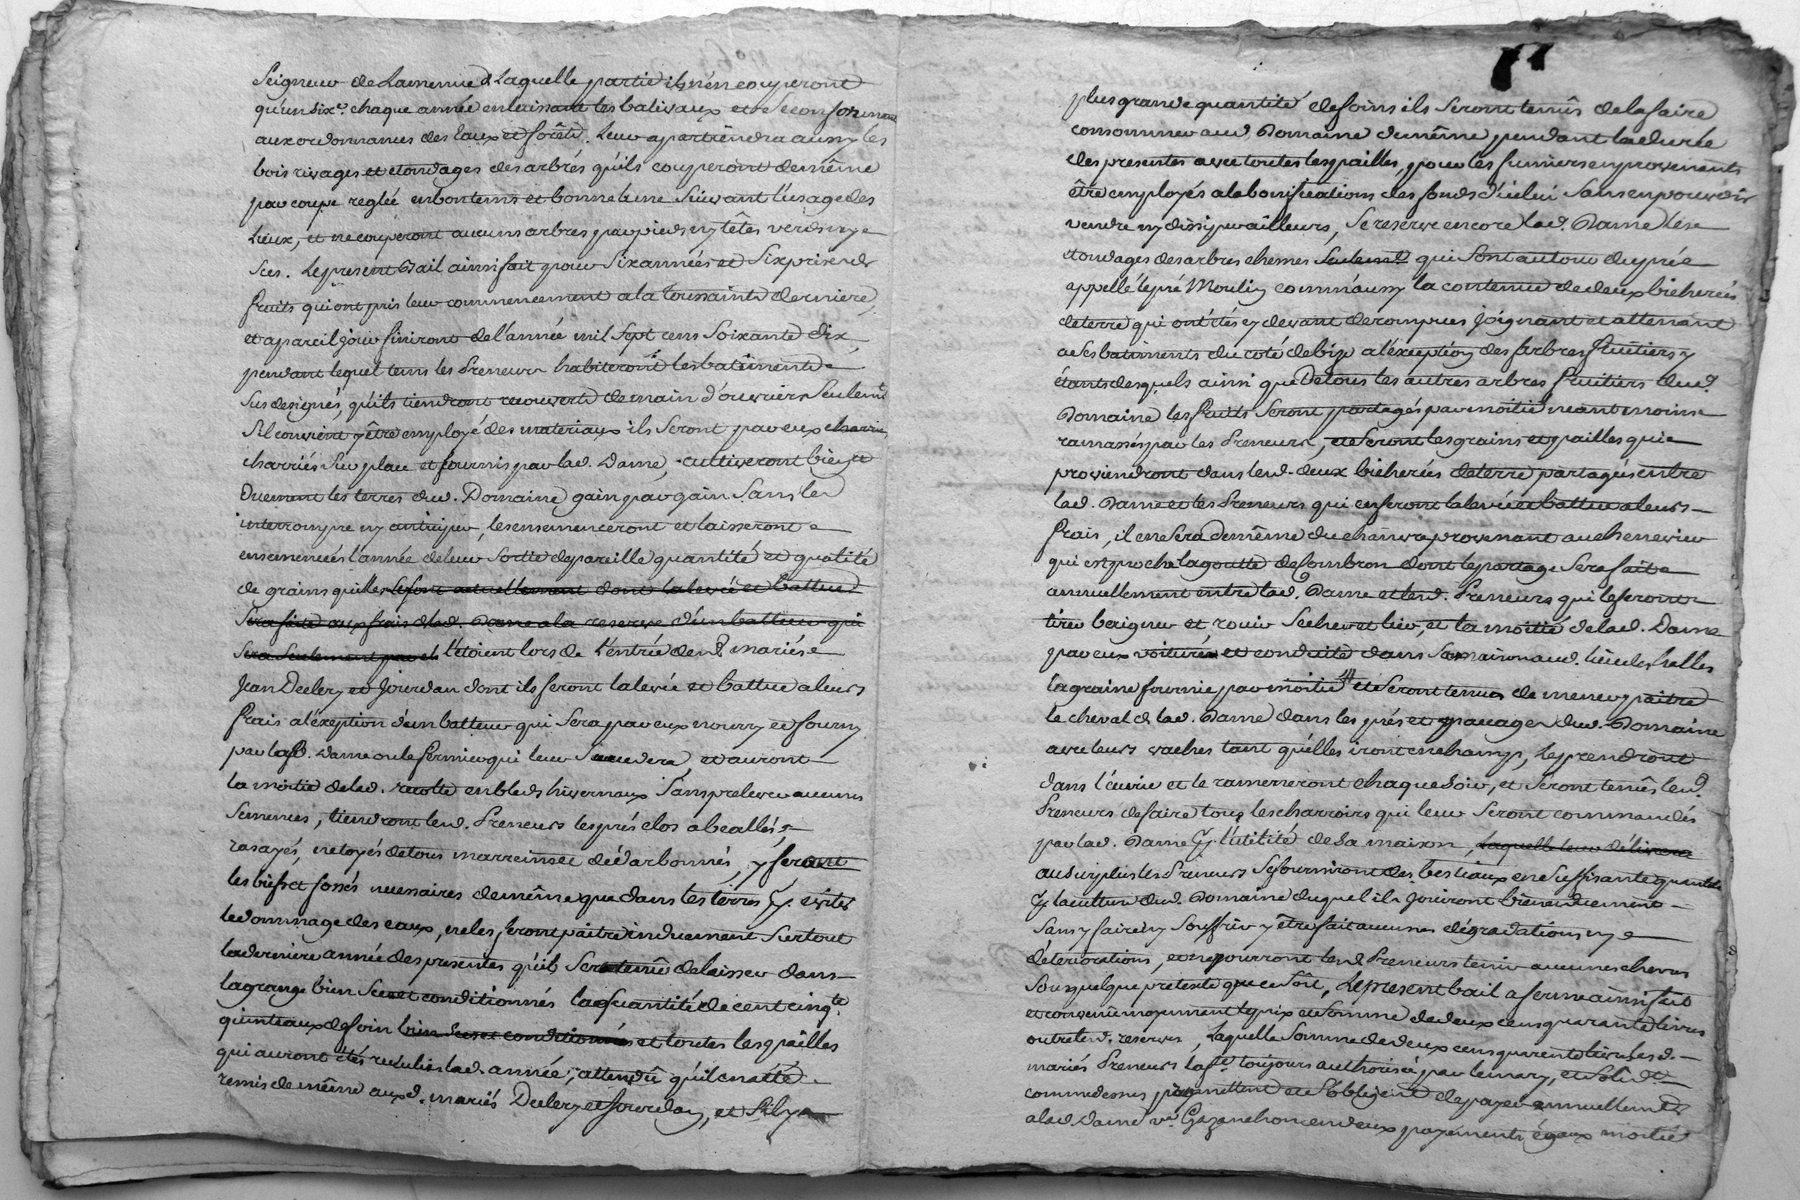 Seigneur de Lamenue d Laquelle partie ils n'en couperont
qu'un six.e chaque année en laissant les balivaux et se conformant
aux ordonnances des Eaux et forêts. Leur apartiendra aussy les
bois rivages et etondages des arbrés qu'ils couperont de même
par coupe reglée en bon tems et bonne lune Suivant l'usage des
Lieux, et ne couperont aucuns arbres par pieds ny têtes verds ny
Secs. Le present Bail ainsi fait pour Six années et Six prises de
fruits qui ont pris leur commencement a la toussaints derniere,
et a pareil jour finiront de l'année mil Sept cens Soixante dix
pendant lequel tems les Preneurs habiteront les batiments
Sus designés, qu'ils tiendront recouverts de main d'ouvriers Seulem.t
S'il convient y être employé des materiaux ils Seront par eux
charriés Sur place et fournis par lad. Dame, cultiveront bien et
Duement les terres dud. Domaine gain par gain Sans les
interrompre ny anticiper, les ensemenceront et laisseront
ensemencés l'année de leur Sortie de pareille quantité et qualité
de grains qu'elles le sont actuellement dont la levée et battue
Sera faite aux frais de lad. Dame a la reserve d'un batteur qui
Sera Seulement par eux l'étoient lors de l'entrée desd. mariés
Jean Decley et Jourdan dont ils feront la levée et battue a leurs
frais a l'éxeption d'un batteur qui Sera par eux nourry et fourny
par lad. Dame ou le fermier qui leur Succedera, et auront
la moitié de lad. recolte en bleds hivernaux Sans prelever aucunes
Semences, tiendront lesd. Preneurs les prés clos a beallés,
rasayés, netoyés de tous marreinsée dédarbonnés, y feront
les biefs et fossés necessaires de même que dans les terres p.r eviter
le dommage des eaux, ne les feront paitre induement Surtout
la derniere année des presentes qu'ils Seront tenûs de laisser dans
la grange bien Secs et conditionnés la quantité de cent cinq.te
quinteaux de foin bien Secs et conditionnés et toutes les pailles
qui auront étés reculies lad. année, attendû qu'il en a été
remis de même aux d. mariés Decley et Jourdan, et S'il y a
plus grande quantité de foins ils Seront tenûs de la faire
consommer aud. Domaine de même pendant la durée
des presentes avec toutes les pailles, pour les fumiers en provenants
être employés a la bonifications des fonds d'icelui Sans en pouvoir
vendre ny dissiper ailleurs, Se reserve encore lad. Dame les
etondages des arbres chesnes Seulem.t qui Sont autour du pré
appellé le pré Moulin comm'aussy la contenue de deux bicherées
de terre qui ont étés cy devant derompues joignant et attenant
a Ses batiments du coté de bize a l'éxeption des arbres fruitiers y
étants desquels ainsi que De tous les autres arbres fruitiers dud.
Domaine les fruits Seront partagés par moitié neantmoins
ramassés par les Preneurs, et Seront les grains et pailles qui
proviendront dans lesd. deux bicherées de terre partagés entre
lad. Dame et les Preneurs qui en feront la levée et battue a leurs
frais, il en Sera de même du chanvre provenant au chenevier
qui est proche la goutte de Combron dont le partage Sera fait
annuellement entre lad. Dame et lesd. Preneurs qui le feront
tirer baigner et rouir Secher et lier, et la moitié de lad. Dame
par eux voiturée et conduite dans Sa maison aud. lieu des halles
la graine fournie par moitié et Seront tenus de mener paitre
le cheval de lad. Dame dans les prés et pacages dud. Domaine
avec leurs vaches tant qu'elles iront en champ, Le prendront
dans l'écurie et le rameneront chaque Soir, et Seront tenûs lesd.
Preneurs de faire tous les charrois qui leur Seront commandés
par lad. Dame p.r l'utilité de Sa maison, laquelle leur délivrera
au Surplus les Preneurs Se fourniront des bestiaux en Suffisante quantité
p.r la culture dud. Domaine duquel ils jouiront bien et duement
Sans y faire ny Souffrir y être fait aucunes dégradations ny
déteriorations, et ne pourront lesd. Preneurs tenir aucunes chevres
Sous quelque pretexte que ce Soit, Le present bail a ferme ainsi fait
et convenu moyennant le prix et Somme de deux cens quarante livres
outre lesd. reserves, Laquelle Somme de deux cens quarente livres lesd.
mariés Preneurs lad. f.e toujours authorisée par le mary, et Solid.t
comme dessus promettent et S'obligent de payer annuellement
a lad. Dame v.e Gazanchon en deux payements égaux moitié